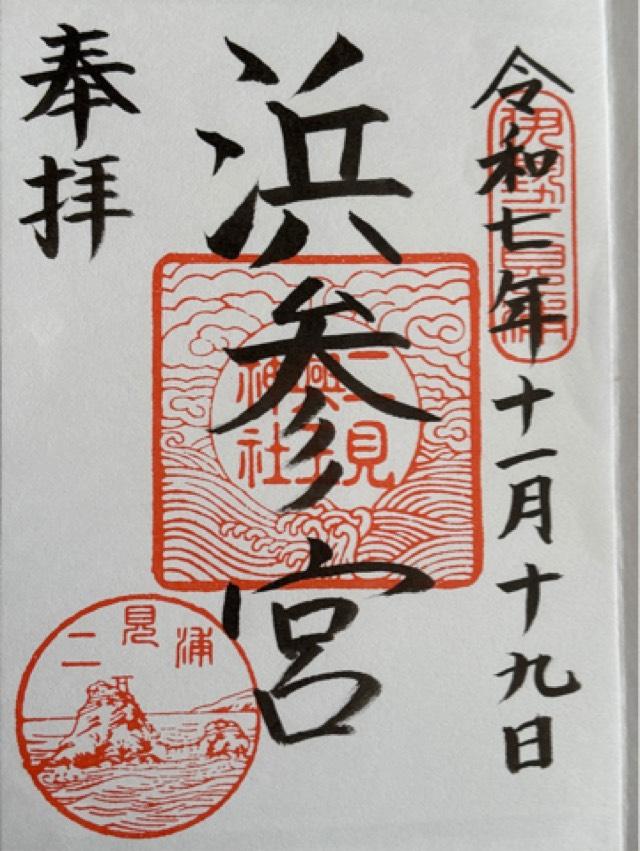 令和七年十一月十九日
伊勢二見浦
浜参宮
二見
興玉
神社
奉拝
二見浦